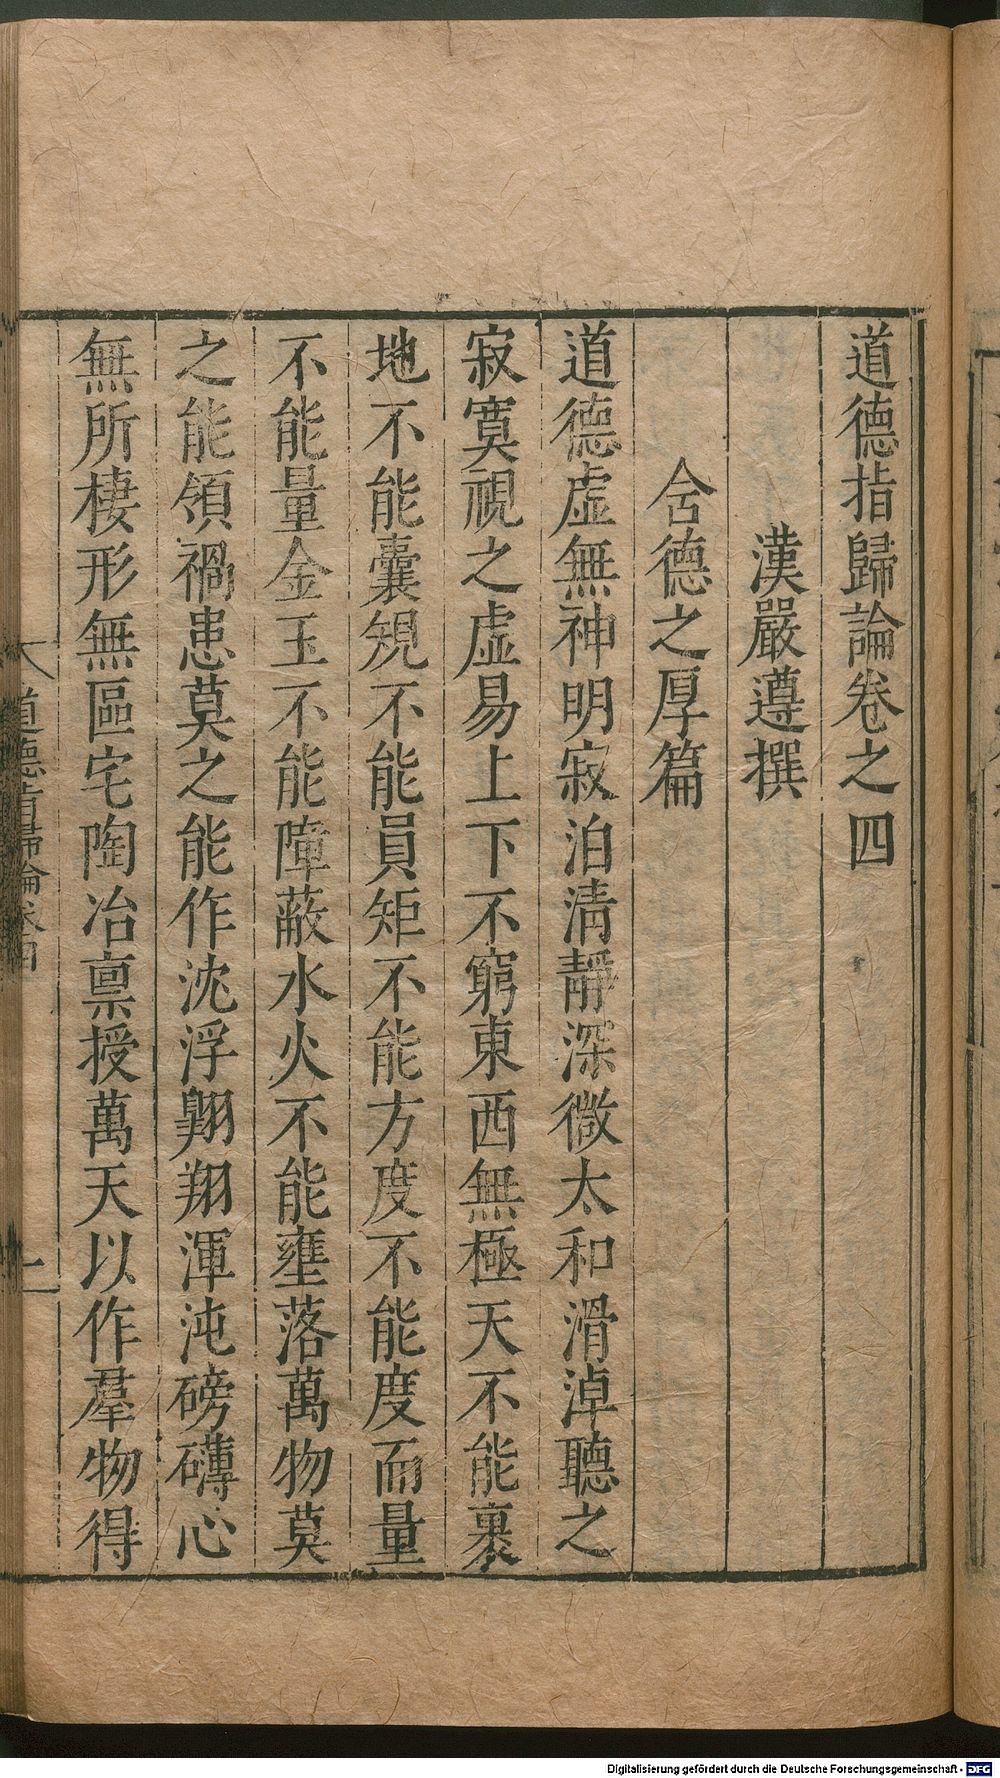 道德指歸論卷之四
漢嚴遵撰
含德之厚篇
道德虛無神明寂泊清靜深微太和滑淖聽之
寂寞視之虛易上下不窮東西無極天不能裹
地不能囊規不能員矩不能方度不能度而量
不能量金玉不能障蔽水火不能壅落萬物莫
之能領禍患莫之能作沈浮翺翔渾沌磅礴心
無所棲形無區宅陶冶禀授萬天以作羣物得
道德指歸論卷四
上
Digitalisierung gefördert durch die Deutsche Forschungsgemeinschaft - DFG